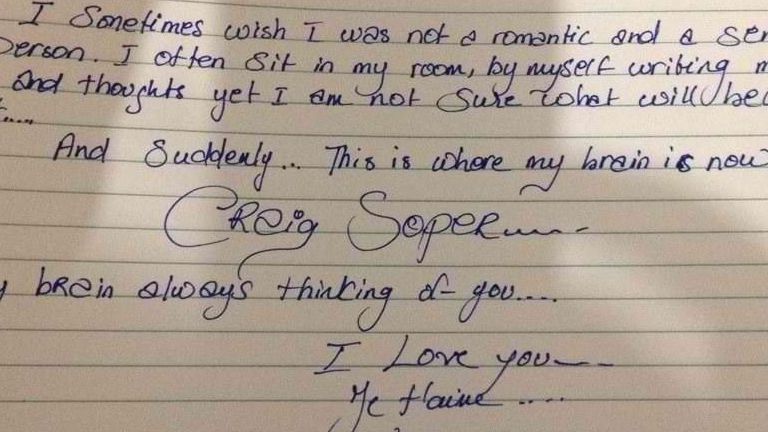 I Sometimes wish I was not a romantic and a sen
person. I often sit in my room, by myself writing m
and thoughts yet I am not sure what will be
t.....
And Suddenly... This is where my brain is now
Craig Soper.....
y brain always thinking of you.....
I Love you....
Je t'aime .....